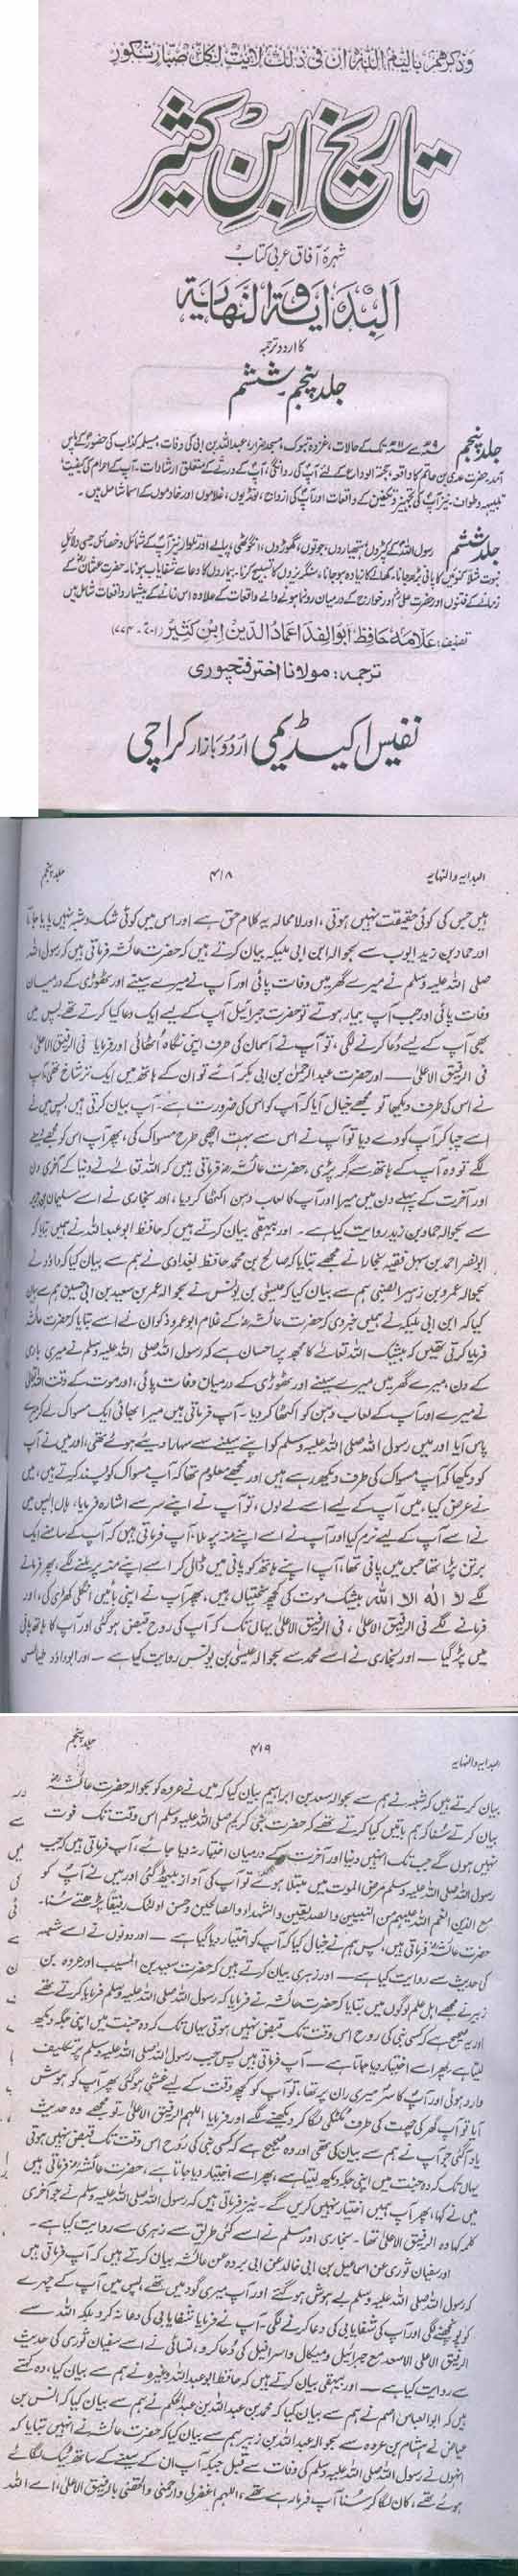 وذكرهم بايام الله ان فى ذلك لايت لكل صبار شكور
تاریخ ابن کثیر
شہرۂ آفاق عربی کتاب
البدایۃ والنہایۃ
کا اردو ترجمہ
جلد پنجم۔ششم
جلد پنجم
جلد ششم
تصنیف: علامہ حافظ ابو الفدا عماد الدین ابن کثیر
ترجمہ: مولانا اختر فتحپوری
نفیس اکیڈیمی اردو بازار کراچی
البدایہ والنہایہ ۴۱۸ جلد پنجم
ہیں جس کی کوئی حقیقت نہیں ہوتی، اور لامحالہ یہ کلام حق ہے اور اس میں کوئی شک و شبہ نہیں پایا جاتا
اور حماد بن زید ایوب سے بحوالہ ابن ابی ملیکہ بیان کرتے ہیں کہ حضرت عائشہ فرماتی ہیں کہ رسول اللہ
صلی اللہ علیہ وسلم نے میرے گھر میں وفات پائی اور آپ نے میرے سینے اور ٹھوڑی کے درمیان
وفات پائی اور جب آپ بیمار ہوتے تو حضرت جبرائیل آپ کے لیے ایک دعا کیا کرتے تھے پس میں
بھی آپ کے لیے دعا کرنے لگی، تو آپ نے آسمان کی طرف اپنی نگاہ اٹھائی اور فرمایا فی الرفیق الاعلیٰ،
فی الرفیق الاعلیٰ — اور حضرت عبد الرحمٰن بن ابی بکر آئے تو ان کے ہاتھ میں ایک تر شاخ تھی آپ
نے اس کی طرف دیکھا تو مجھے خیال آیا کہ آپ کو اس کی ضرورت ہے۔ آپ بیان کرتی ہیں پس میں نے
اسے چبا کر آپ کو دے دیا تو آپ نے اس سے بہت اچھی طرح مسواک کی، پھر آپ اس کو مجھے دینے
لگے تو وہ آپ کے ہاتھ سے گر پڑی، حضرت عائشہ فرماتی ہیں کہ اللہ تعالیٰ نے دنیا کے آخری دن
اور آخرت کے پہلے دن میں میرا اور آپ کا لعاب دہن اکٹھا کر دیا، اور بخاری نے اسے سلیمان بن جریر
سے بحوالہ حماد بن زید روایت کیا ہے۔ اور بیہقی بیان کرتے ہیں کہ حافظ ابو عبد اللہ نے ہمیں بتایا کہ
ابو نصر احمد بن سہل فقیہ بخارا نے مجھے بتایا کہ صالح بن محمد حافظ بغدادی نے ہم سے بیان کیا کہ داؤد نے
بحوالہ عمرو بن زہیر الضبی ہم سے بیان کیا کہ عیسیٰ بن یونس نے بحوالہ عمر بن سعید بن ابی حسین ہم سے بیان
کیا کہ ابن ابی ملیکہ نے ہمیں خبر دی کہ حضرت عائشہ کے غلام ابو عمرو ذکوان نے اسے بتایا کہ حضرت عائشہ
فرمایا کرتی تھیں کہ بیشک اللہ تعالیٰ کا مجھ پر احسان ہے کہ رسول اللہ صلی اللہ علیہ وسلم نے میری باری
کے دن، میرے گھر میں میرے سینے اور ٹھوڑی کے درمیان وفات پائی، اور موت کے وقت اللہ تعالیٰ
نے میرے اور آپ کے لعاب دہن کو اکٹھا کر دیا۔ آپ فرماتی ہیں میرا بھائی ایک مسواک لے کر میرے
پاس آیا اور میں رسول اللہ صلی اللہ علیہ وسلم کو اپنے سینے سے سہارا دیے ہوئے تھی، اور میں نے آپ
کو دیکھا کہ آپ مسواک کی طرف دیکھ رہے ہیں اور مجھے معلوم تھا کہ آپ مسواک کو پسند کرتے ہیں، میں
نے عرض کیا، میں آپ کے لیے اسے لے لوں، تو آپ نے اپنے سر سے اشارہ فرمایا، ہاں! پس میں
نے اسے آپ کے لیے نرم کیا اور آپ نے اسے اپنے منہ پر ملا، آپ فرماتی ہیں کہ آپ کے سامنے ایک
برتن پڑا تھا جس میں پانی تھا، آپ اپنے ہاتھ کو پانی میں ڈال کر اسے اپنے منہ پر ملنے لگے، پھر فرمانے
لگے لا الہ الا اللہ، بیشک موت کی کچھ سختیاں ہیں، پھر آپ نے اپنی بائیں انگلی کھڑی کی، اور
فرمانے لگے فی الرفیق الاعلیٰ، فی الرفیق الاعلیٰ یہاں تک کہ آپ کی روح قبض ہو گئی اور آپ کا ہاتھ پانی
میں پڑ گیا — اور بخاری نے اسے محمد سے بحوالہ عیسیٰ بن یونس روایت کیا ہے — اور ابو داؤد طیالسی
البدایہ والنہایہ ۴۱۹ جلد پنجم
بیان کرتے ہیں کہ شعبہ نے ہم سے بحوالہ سعد بن ابراہیم بیان کیا کہ میں نے عروہ کو بحوالہ حضرت عائشہ
بیان کرتے سنا کہ ہم باتیں کیا کرتے تھے کہ حضرت نبی کریم صلی اللہ علیہ وسلم اس وقت تک فوت
نہیں ہوں گے جب تک انہیں دنیا اور آخرت کے درمیان اختیار نہ دیا جائے، آپ فرماتی ہیں کہ جب
رسول اللہ صلی اللہ علیہ وسلم مرض الموت میں مبتلا ہوئے تو آپ کی آواز بیٹھ گئی اور میں نے آپ کو
مع الذین انعم اللہ علیہم من النبیین والصدیقین والشہداء والصالحین وحسن اولئک رفیقا پڑھتے سنا۔
حضرت عائشہ فرماتی ہیں، پس ہم نے خیال کیا کہ آپ کو اختیار دیا گیا ہے — اور دونوں نے اسے شعبہ
کی حدیث سے روایت کیا ہے — اور زہری بیان کرتے ہیں کہ حضرت سعید بن المسیب اور عروہ بن
زبیر نے مجھے اہل علم لوگوں میں بتایا کہ حضرت عائشہ نے فرمایا کہ رسول اللہ صلی اللہ علیہ وسلم فرمایا کرتے تھے
اور یہ صحیح ہے کہ کسی نبی کی روح اس وقت تک قبض نہیں ہوتی یہاں تک کہ وہ جنت میں اپنی جگہ دیکھ
لیتا ہے، پھر اسے اختیار دیا جاتا ہے — آپ فرماتی ہیں پس جب رسول اللہ صلی اللہ علیہ وسلم پر تکلیف
وارد ہوئی اور آپ کا سر میری ران پر تھا، تو آپ کو کچھ وقت کے لیے غشی ہو گئی پھر آپ کو ہوش
آیا تو آپ گھر کی چھت کی طرف ٹکٹکی لگا کر دیکھنے لگے اور فرمایا اللہم الرفیق الاعلیٰ، تو مجھے وہ حدیث
یاد آگئی جو آپ نے ہم سے بیان کی تھی اور وہ صحیح ہے کہ کسی نبی کی روح اس وقت تک قبض نہیں ہوتی
یہاں تک کہ وہ جنت میں اپنی جگہ دیکھ لیتا ہے، پھر اسے اختیار دیا جاتا ہے، حضرت عائشہ فرماتی ہیں
میں نے کہا، پھر آپ ہمیں اختیار نہیں کریں گے۔ نیز فرماتی ہیں کہ رسول اللہ صلی اللہ علیہ وسلم نے جو آخری
کلمہ کہا وہ الرفیق الاعلیٰ تھا۔ بخاری اور مسلم نے اسے کئی طرق سے زہری سے روایت کیا ہے۔
اور سفیان ثوری عن اسماعیل بن ابی خالد عن ابی بردہ عن عائشہ بیان کرتے ہیں کہ آپ فرماتی ہیں
کہ رسول اللہ صلی اللہ علیہ وسلم بے ہوش ہو گئے اور آپ میری گود میں تھے، پس میں آپ کے چہرے
کو پونچھنے لگی اور آپ کی شفایابی کی دعا کرنے لگی۔ آپ نے فرمایا شفایابی کی دعا نہ کرو بلکہ اللہ سے
الرفیق الاعلیٰ الاسعد مع جبرائیل ومیکال واسرافیل کی دعا کرو، نسائی نے اسے سفیان ثوری کی حدیث
سے روایت کیا ہے — اور بیہقی بیان کرتے ہیں کہ حافظ ابو عبد اللہ وغیرہ نے ہم سے بیان کیا، وہ کہتے
ہیں کہ ابو العباس اصم نے ہم سے بیان کیا کہ محمد بن عبد اللہ بن عبد الحکم نے ہم سے بیان کیا کہ انس بن
عیاض نے ہشام بن عروہ سے بحوالہ عباد بن عبد اللہ بن زبیر ہم سے بیان کیا کہ حضرت عائشہ نے انہیں بتایا کہ
انہوں نے رسول اللہ صلی اللہ علیہ وسلم کی وفات سے قبل جبکہ آپ ان کے سینے کے ساتھ ٹیک لگائے
ہوئے تھے، کان لگا کر سنا آپ فرما رہے تھے، اللہم اغفرلی وارحمنی والحقنی بالرفیق الاعلیٰ، اے اللہ